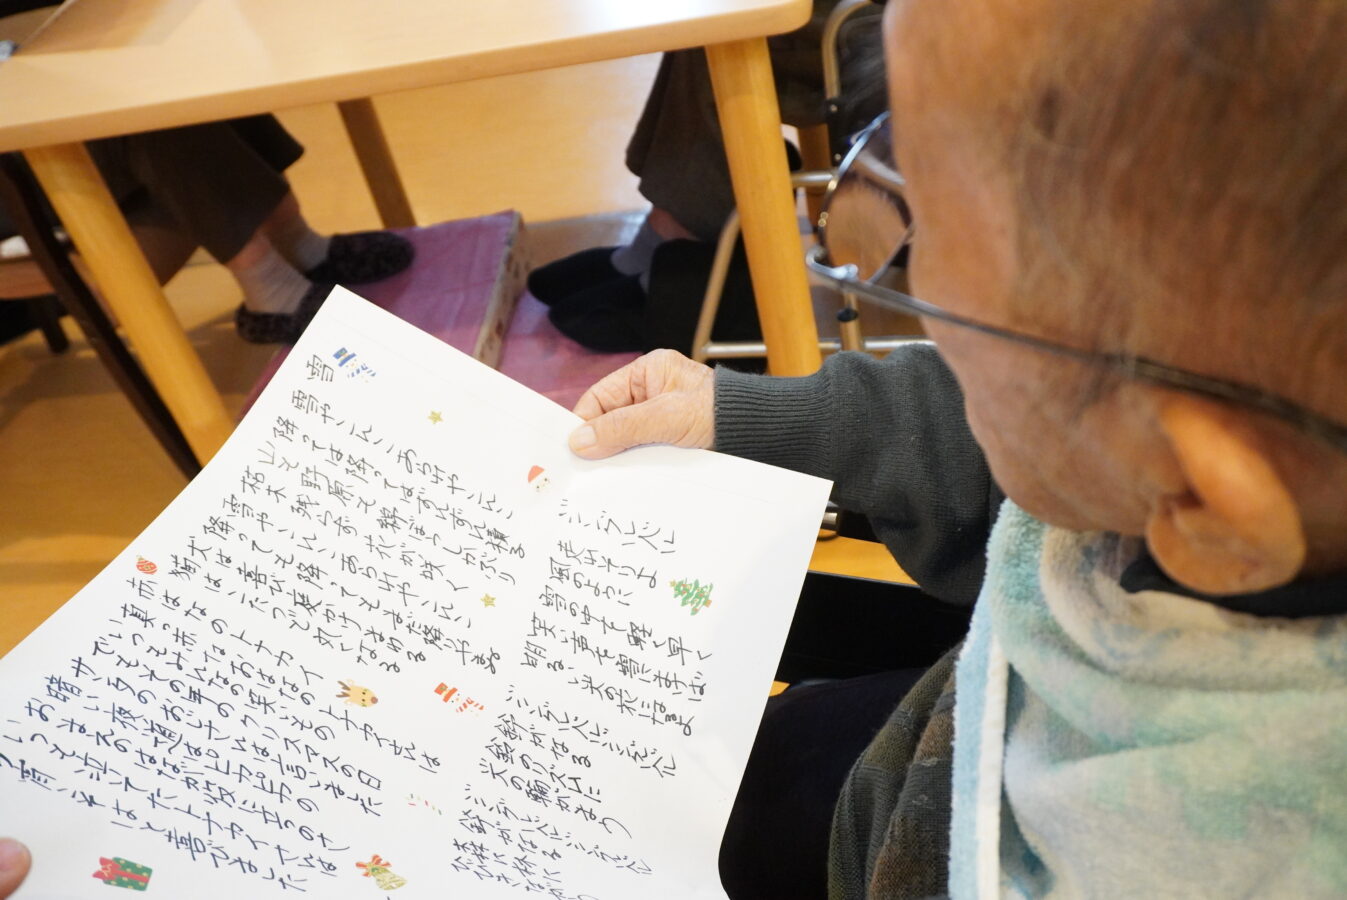 雪
雪やこんこ あられやこんこ
降っては降ってはずんずん積る
山も野原も綿ぼうしかぶり
枯木残らず花が咲く
雪やこんこ あられやこんこ
降っても降ってもまだ降りやまぬ
犬は喜び庭かけまわり
猫はこたつで丸くなる
赤はなのトナカイ
真っ赤なおはなのトナカイさんは
いつもみんなの笑いもの
でもその年のクリスマスの日
サンタのおじさんは言いました
暗い夜道はピカピカの
おまえのはなが役に立つのさ
いつも泣いてたトナカイさんは
今宵こそはと喜びました
ジングルベル
走れそりよ
風のように
雪の中を 軽く早く
笑い声を 雪にまけば
明るい光の 花になるよ
ジングルベル ジングルベル
鈴がなる
鈴のリズムに
光の輪がまう
ジングルベル ジングルベル
鈴がなる
森に林に
ひびきながら